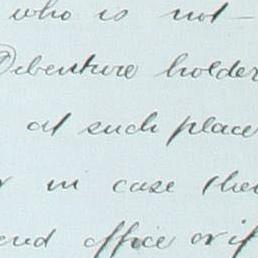 who is not
Debenture holder
at such place
in case the
end office or if